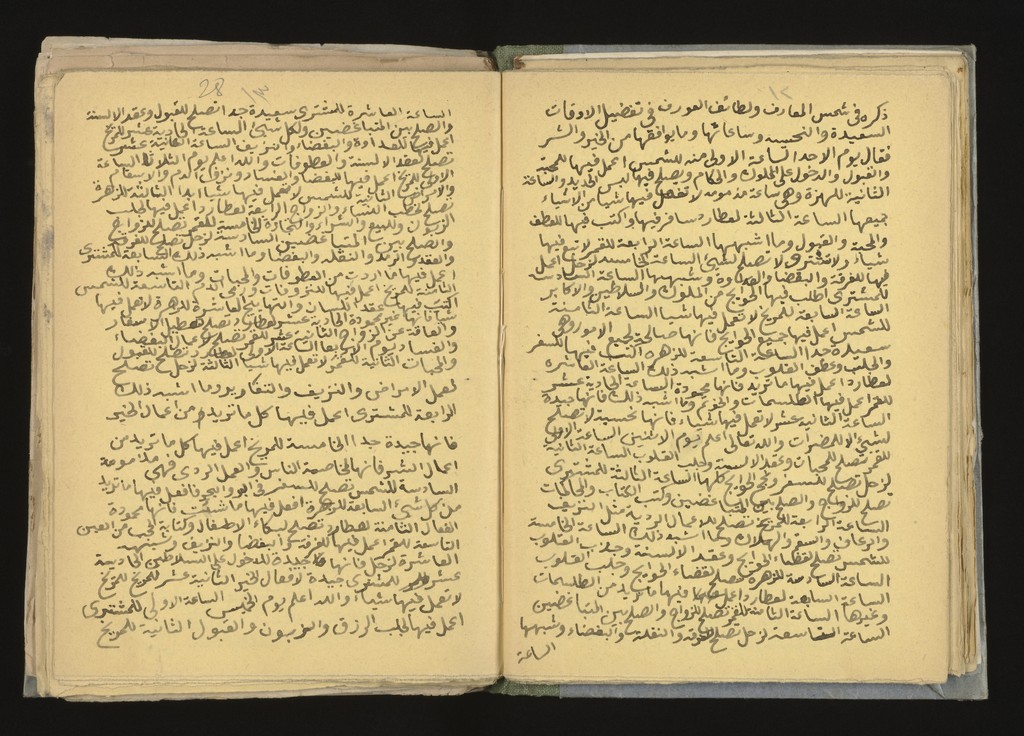 ١٢
ذكره في شمس المعارف ولطائف العوارف في تفضيل الاوقات
السعيدة والنحيسه وساعاتها وما يوافقها من الخير والشر
فقال يوم الاحد الساعة الاولى منه للشمس اعمل فيها للمحبة
والقبول والدخول على الملوك والحكام ويصلح فيها لبس الجديد والساعة
الثانية للزهرة وهي ساعة مذمومه لا تفعل فيها شيا من الاشياء
جميعها الساعة الثالثة لعطارد سافر فيها واكتب فيها للعطف
والمحبة والقبول وما اشبهها الساعة الرابعة للقمر لا تبع فيها
شياء ولا تشتري ولا تصلح لشيء الساعة الخامسه لزحل اعمل
فيها للفرقه والبغضا والعداوة وشبهها الساعة السادسه
للمشتري اطلب فيها الحوايج من الملوك والسلاطين والاكابر
الساعة السابعة للمريخ لا تعمل فيها شيا الساعة الثامنة
للشمس اعمل فيها جميع الحوايج فانها صالحة لجميع الامور وهي
سعيدة جدا الساعة التاسعة للزهره اكتب فيها للسفر
والجلب وعطف القلوب وما اشبه ذلك الساعة العاشره
لعطارد اعمل فيها ما تريد فانها محمودة الساعة الحادية عشر
للقمر اعمل فيها الطلسمات والخواتم وما اشبه ذلك فانها جيدة
الساعة الثانية عشر لا تعمل فيها شياء فانها نحسية لا تصلح
لشيء الا للمضرات والله تعالى اعلم يوم الاثنين الساعة الاولى
للقمر تصلح للمحبات وعقد الالسنة وجلب القلوب الساعة الثانية
لزحل تصلح للسفر وفي الحوايج كلها الساعة الثالثة للمشتري
تصلح للزواج والصلح بين المتباغضين وكتب الكتاب والمحاكمات
الساعة الرابعة للمريخ تصلح للاعمال الردية مثل النزيف
والرعاف والسقم والهلاك وما اشبه ذلك الساعة الخامسة
للشمس تصلح لقضاء الحوايج وعقد الالسنة وجلب القلوب
الساعة السادسة للزهره تصلح لقضاء الحوايج وجلب القلوب
الساعة السابعة لعطارد اعمل فيها ما تريد من الطلسمات
وغيرها الساعة الثامنة للقمر تصلح للزواج والصلح بين المتباغضين
الساعة التاسعة لزحل تصلح للفرقه والنقلة والبغضاء وشبهها
الساعة
28
١٣
الساعة العاشرة للمشتري سعيدة جدا تصلح للقبول وعقد الالسنة
والصلح بين المتباغضين ولكل شيء الساعة الحادية عشر للمريخ
اعمل فيها للعداوة والبغضاء والنزيف الساعة الثانية عشر
تصلح لعقد الالسنة والعطوفات والله اعلم يوم الثلوثا الساعة
الاولى للمريخ اعمل فيها للبغضا والفساد ونزول الدم والاسقام
والامراض الثانية للشمس لا تعمل فيها شيا ابدا الثالثة للزهرة
تصلح لخطب النساء والزواج الرابعة لعطارد اعمل فيها لجلب
الزبون والبيع والشراء والتجارة الخامسة للقمر تصلح للزواج
والصلح بين المتباغضين السادسة لزحل تصلح للفروق
والنقله والبغضا وما اشبه ذلك السابعة للمشتري
اعمل فيها ما اردت من العطوفات والمحبات وما اشبه ذلك
الثامنة للمريخ اعمل فيها للتفروقات ورمي الدم التاسعة للشمس
اكتب فيها عقد اللسان والتهاييج العاشرة للزهرة لا تعمل فيها
شيا فانها غير محمودة الحادية عشر لعطارد تصلح لتعطيل الاسفار
والعاقة عن الزواج الثانية عشر للقمر تصلح لاعمال البغضاء
والفساد يوم الاربعا الساعة الاولى لعطارد تصلح للقبول
والمحبات الثانية للقمر لا تعمل فيها شيا الثالثة لزحل تصلح
لعمل الامراض والنزيف والتقاوير وما اشبه ذلك
الرابعة للمشتري اعمل فيها كل ما تريد من اعمال الخير
فانها جيدة جدا الخامسة للمريخ اعمل فيها كل ما تريد من
اعمال الشر فانها لمخاصمة الناس والعمل الردي فهي مذمومة
السادسة للشمس تصلح للسفر في البر والبحر فافعل فيها ما تريد
من كل شيء السابعة للزهرة افعل فيها ما شئت فانها محمودة
الفعال الثامنة لعطارد تصلح لبكاء الاطفال وكتابة لحجب من العين
التاسعة للقمر اعمل فيها للفرقه والبغضا والنزيف وشبهه
العاشرة لزحل فانها جيدة للدخول على السلاطين الحادية
عشر للمشتري جيدة لافعال الخير الثانية عشر للمريخ
لا تعمل فيها شياء والله اعلم يوم الخميس الساعة الاولى للمشتري
اعمل فيها لجلب الرزق والزبون والقبول الثانية للمريخ